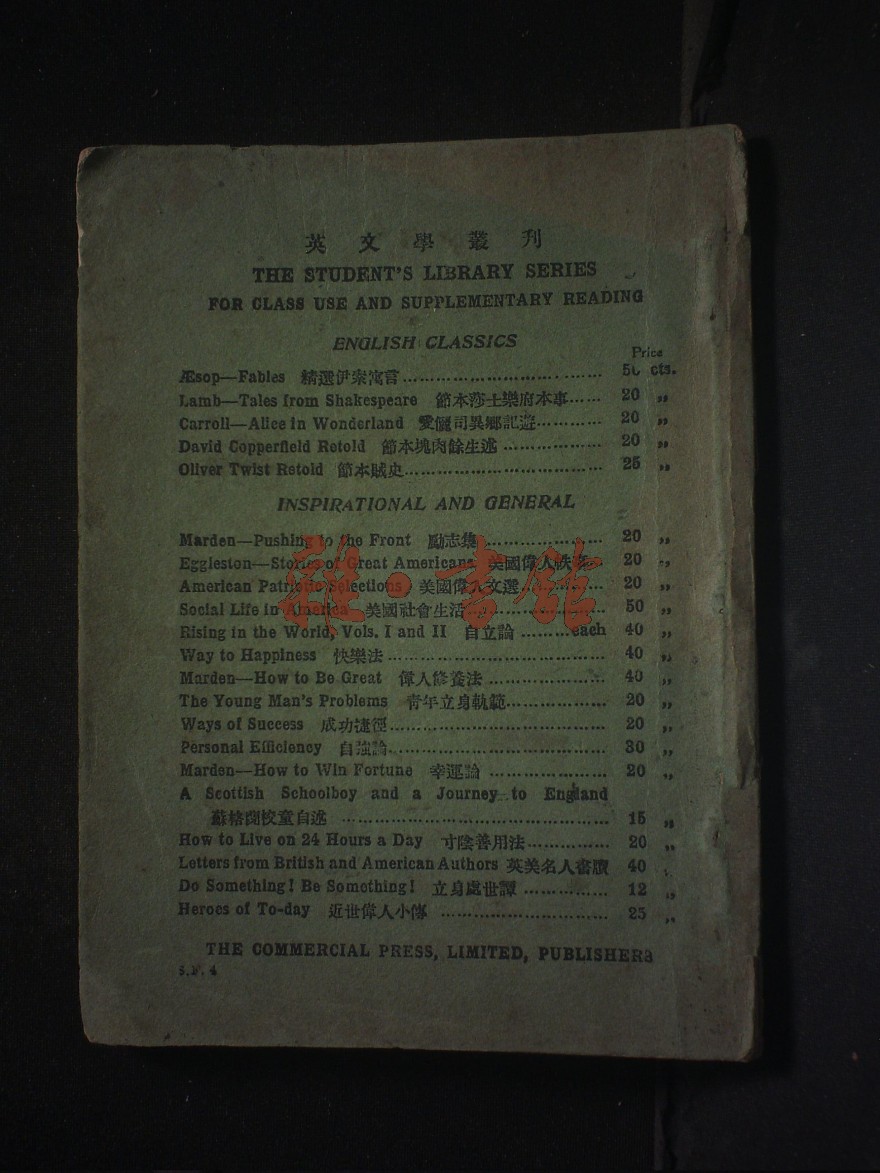 英文學叢刊
THE STUDENT'S LIBRARY SERIES
FOR CLASS USE AND SUPPLEMENTARY READING
ENGLISH CLASSICS
Price
Æsop—Fables 精選伊索寓言 ........ 50 cts.
Lamb—Tales from Shakespeare 節本莎士樂府本事 ...... 20 ,,
Carroll—Alice in Wonderland 愛儷司異鄉記遊 ........ 20 ,,
David Copperfield Retold 節本塊肉餘生述 ........ 20 ,,
Oliver Twist Retold 節本賊史 ........ 25 ,,
INSPIRATIONAL AND GENERAL
Marden—Pushing to the Front 勵志集 ........ 20 ,,
Eggleston—Stories of Great Americans 美國偉人軼事 .. 20 ,,
American Patriotic Selections 美國偉人文選 ........ 20 ,,
Social Life in America 美國社會生活 ........ 50 ,,
Rising in the World, Vols. I and II 自立論 ........ each 40 ,,
Way to Happiness 快樂法 ........ 40 ,,
Marden—How to Be Great 偉人修養法 ........ 40 ,,
The Young Man's Problems 青年立身軌範 ........ 20 ,,
Ways of Success 成功捷徑 ........ 20 ,,
Personal Efficiency 自強論 ........ 30 ,,
Marden—How to Win Fortune 幸運論 ........ 20 ,,
A Scottish Schoolboy and a Journey to England
蘇格蘭校童自述 ........ 15 ,,
How to Live on 24 Hours a Day 寸陰善用法 ........ 20 ,,
Letters from British and American Authors 英美名人書牘 40 ,,
Do Something! Be Something! 立身處世譚 ........ 12 ,,
Heroes of To-day 近世偉人小傳 ........ 25 ,,
THE COMMERCIAL PRESS, LIMITED, PUBLISHERS
S.F. 4
雜·書館